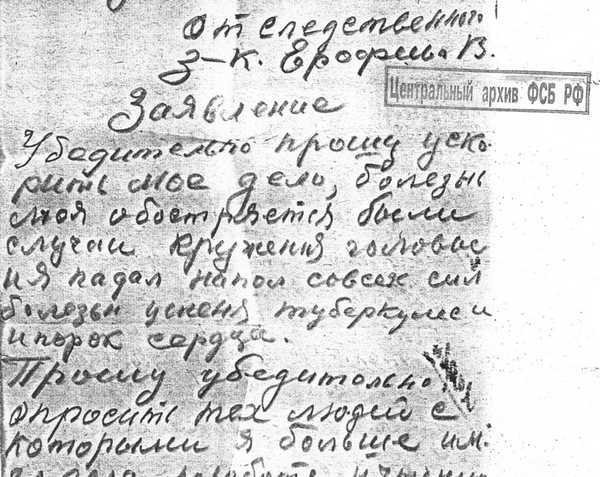 от следственного
з-к. Ерофеева В.
Центральный архив ФСБ РФ
Заявление
Убедительно прошу уско
рить мое дело, болезнь
моя обостряется были
случаи кружения головы
и я падал напол совсех сил
болезьн уменя туберкулес и
ипорок сердца.
Прошу убедительно
опросить тех людей с
которыми я больше им